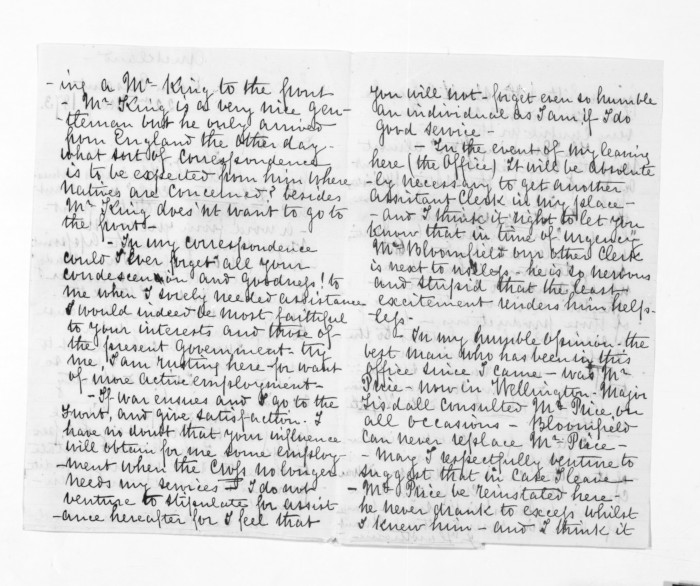 -ing a Mr King to the front
- Mr King is a very nice gen-
tleman but he only arrived
from England the other day.
what sort of correspondence
is to be expected from him where
Natives are concerned? besides
Mr King does'nt want to go to
the front -
- In my correspondence
could I ever forget all your
condescension and goodness! to
me when I sorely needed assistance
I would indeed be most faithful
to your interests and those of
the present Government - try
me, I am rusting here - for want
of more active employment -
- If war ensues and I go to the
front, and give satisfaction. I
have no doubt that your influence
will obtain for me some employ
-ment when the no longer
needs my services - I do not
venture to stipulate for assist
-ance hereafter for I feel that
you will not - forget even so humble
an individual as I am if I do
good service -
- In the event of my leaving
here (the Office) It will be absolute
-ly necessary to get another
assistant Clerk in my place -
- and I think it right to let you
know that in time of "urgency"
Mr Bloomfield our other Clerk
is next to useless - he is so nervous
and stupid that the least
excitement renders him help-
-less -
- In my humble opinion - the
best man who has been in this
office since I came - was Mr
Price - now in Wellington. Major
Tisdall consulted Mr Price, on
all occasions - Bloomfield
can never replace Mr Price -
- May I respectfully venture to
suggest that in case I leave
- Mr Price be reinstated here -
he never drank to excess whilst
I knew him - and I think it